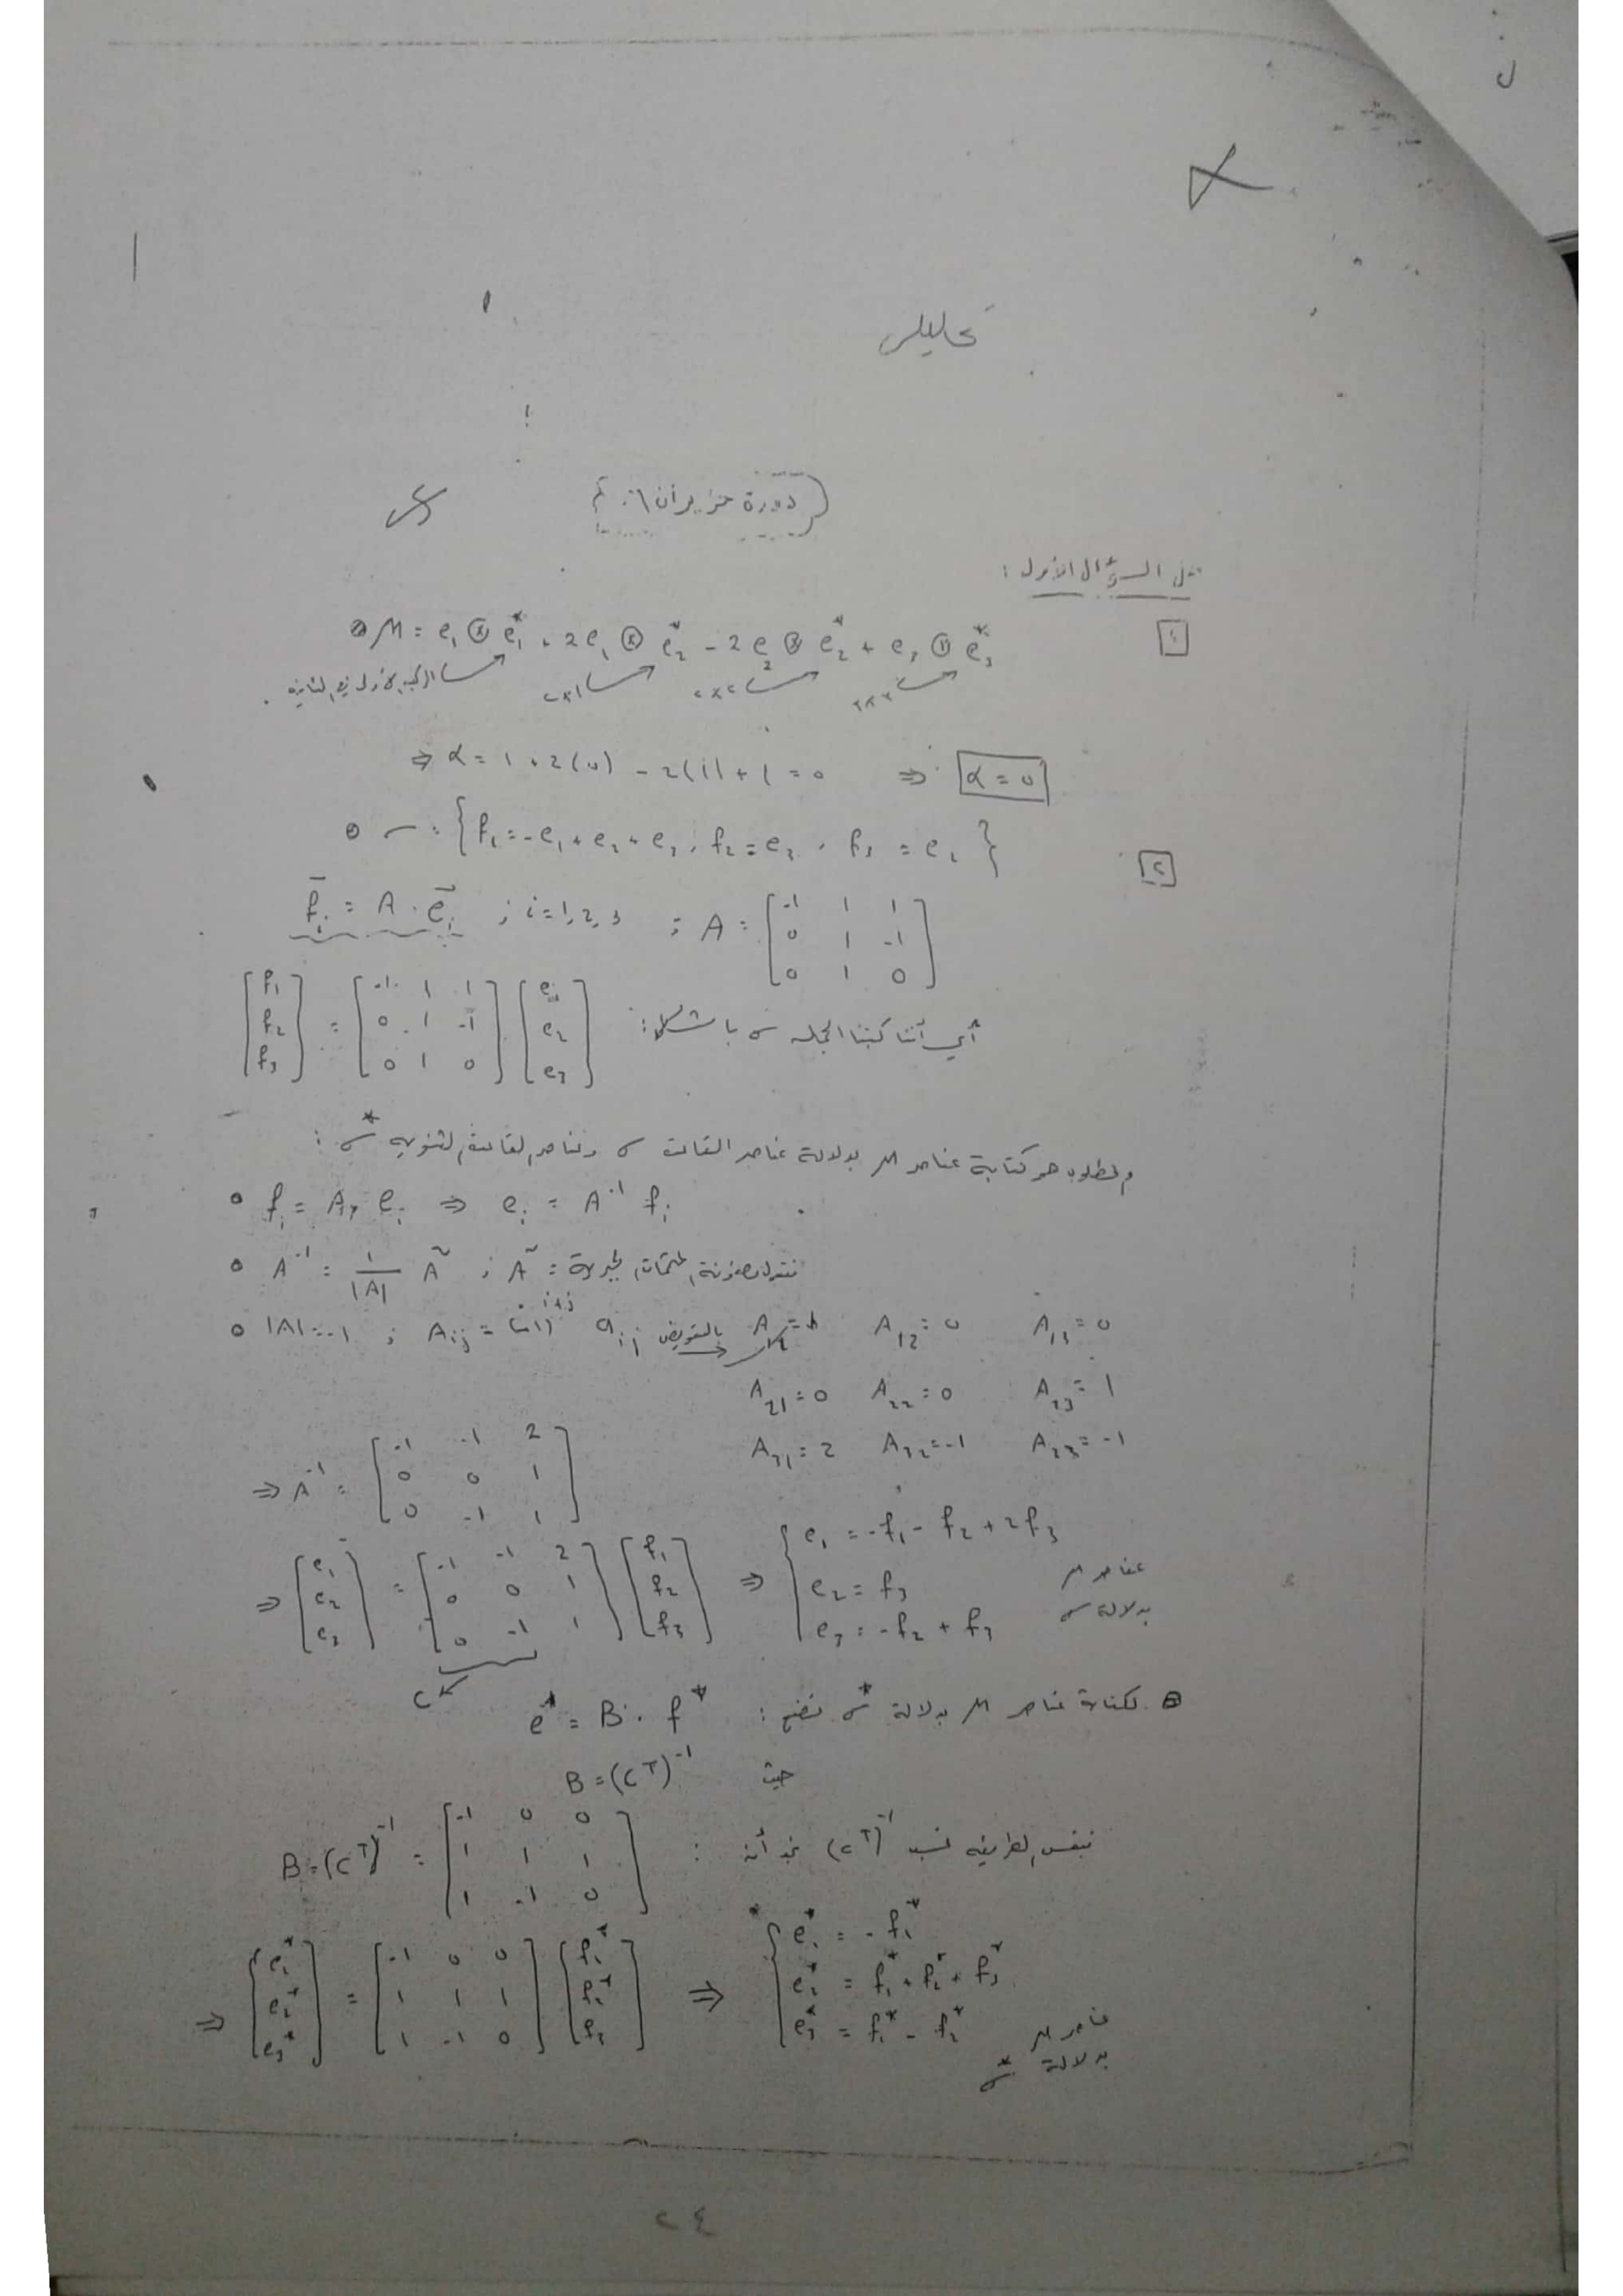 تحليل
(دورة حزيران
حل السؤال الأول :
1 M = e₁ ⊗ e₁* + 2e₁ ⊗ e₂* - 2e₂ ⊗ e₂* + e₃ ⊗ e₃*
⇒ α = 1 + 2(0) - 2(1) + 1 = 0 ⇒ α = 0
٢ : { f₁ = -e₁ + e₂ + e₃ , f₂ = e₃ , f₃ = e₂ }
f̄ᵢ = A . ēᵢ ; i = 1, 2, 3 ; A = [-1 1 1 ; 0 1 -1 ; 0 1 0]
أي أننا كتبنا الجملة س بالشكل : [f₁ ; f₂ ; f₃] = [-1 1 1 ; 0 1 -1 ; 0 1 0] . [e₁ ; e₂ ; e₃]
والمطلوب هو كتابة عناصر M بدلالة عناصر القاعدة س وعناصر القاعدة الثنوية س* :
fᵢ = A . eᵢ ⇒ eᵢ = A⁻¹ fᵢ
A⁻¹ = 1/|A| Ã ; Ã = منقول مصفوفة المتممات الجبرية
|A| = 1 ; Aᵢⱼ = (-1)ⁱ⁺ʲ aᵢⱼ بالتعويض A₁₂ = 0 A₁₃ = 0
A₂₁ = 0 A₂₂ = 0 A₂₃ = 1
A₃₁ = 2 A₃₂ = -1 A₃₃ = -1
⇒ A⁻¹ = [-1 -1 2 ; 0 0 1 ; 0 -1 1]
⇒ [e₁ ; e₂ ; e₃] = [-1 -1 2 ; 0 0 1 ; 0 -1 1] [f₁ ; f₂ ; f₃] ⇒ { e₁ = -f₁ - f₂ + 2f₃
e₂ = f₃
e₃ = -f₂ + f₃
عناصر M
بدلالة س
C
لكتابة عناصر M بدلالة س* نضع : e* = B . f*
حيث B = (Cᵀ)⁻¹
بنفس الطريقة نحسب (Cᵀ)⁻¹ نجد أن : B = (Cᵀ)⁻¹ = [-1 0 0 ; 1 1 1 ; 1 -1 0]
⇒ [e₁* ; e₂* ; e₃*] = [-1 0 0 ; 1 1 1 ; 1 -1 0] [f₁* ; f₂* ; f₃] ⇒ { e₁* = -f₁*
e₂* = f₁* + f₂* + f₃*
e₃* = f₁* - f₂*
عناصر M
بدلالة س*
٢٤